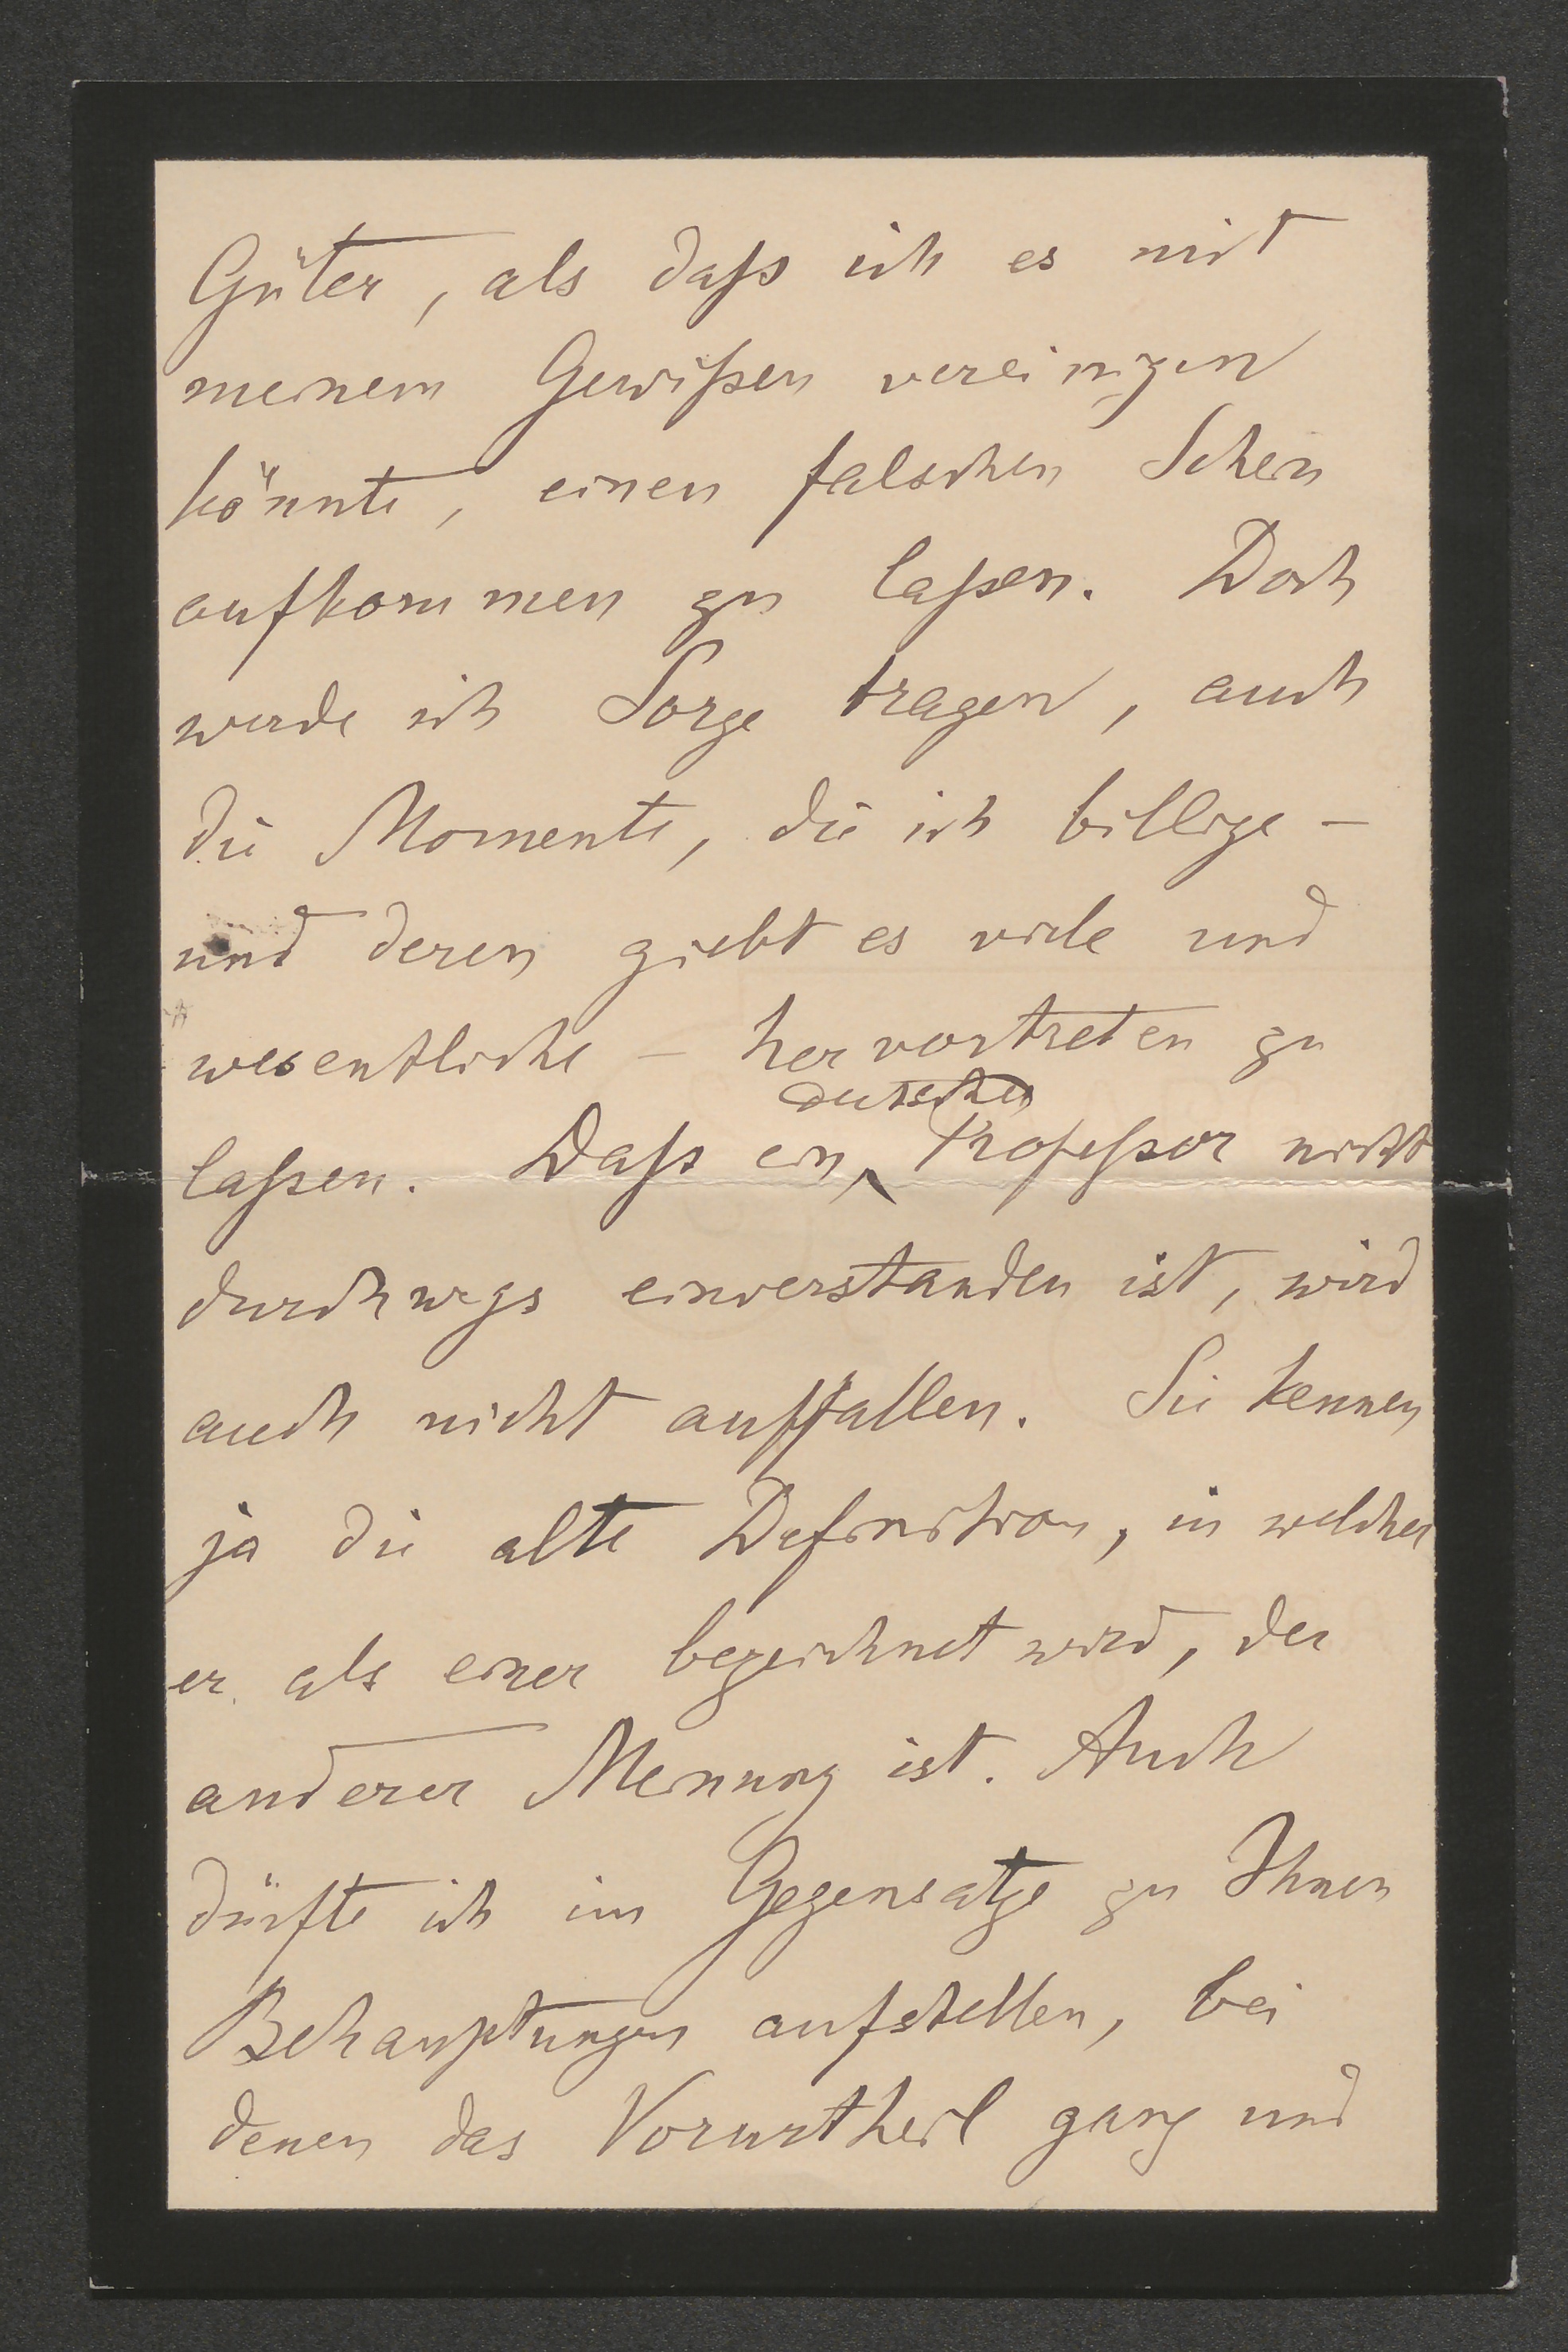 Güter, als daß ich es mit
meinem Gewißen vereinigen
könnte, einen falschen Schein
aufkommen zu laßen. Doch
werde ich Sorge tragen, auch
die Momente, die ich billige –
und deren giebt es viele und
wesentliche – hervortreten zu
deutscher
laßen. Daß ein Profeßor nicht
durchwegs einverstanden ist, wird
auch nicht auffallen. Sie kennen
ja die alte Definition, in welcher
er als einer bezeichnet wird, der
anderer Meinung ist. Auch
dürfte ich im Gegensatze zu Ihnen
Behauptungen aufstellen, bei
denen das Vorurtheil ganz und